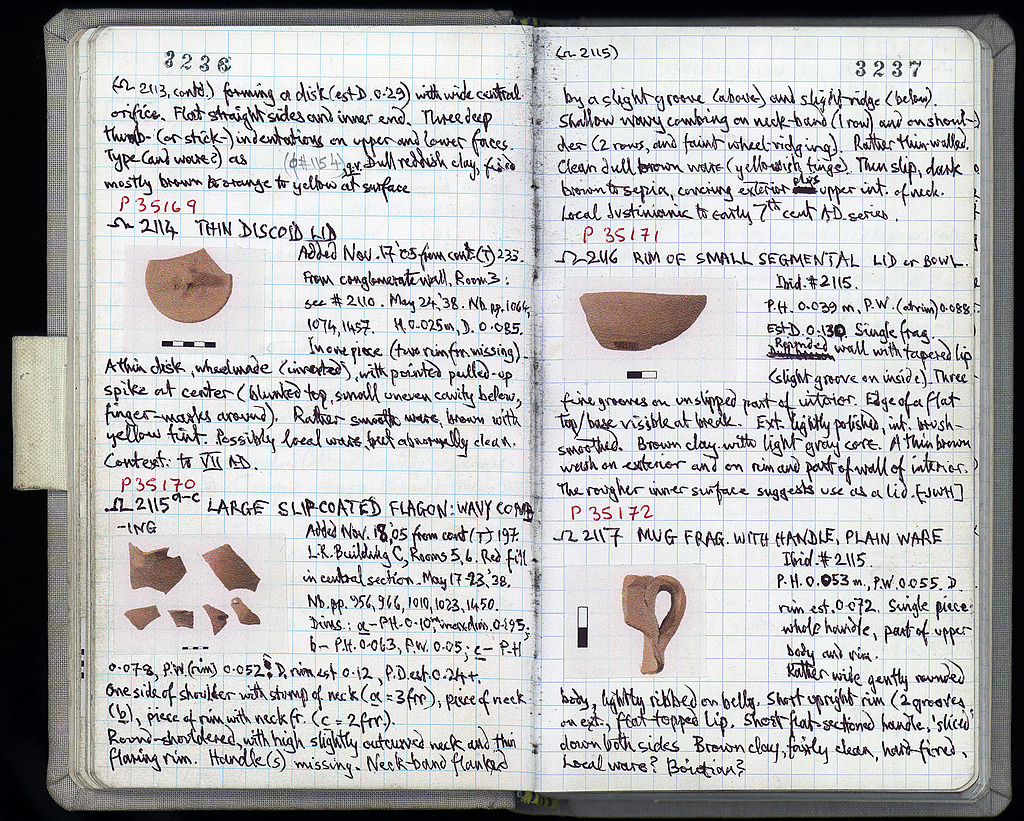 3236
(Ω 2113, contd.) forming a disk (est D. 0.29) with wide central
orifice. Flat straight sides and inner end. Three deep
thumb- (or stick-) indentations on upper and lower faces.
Type (and ware?) as (φ#1154) gr. Dull reddish clay, fired
mostly brown to orange to yellow at surface
P 35169
Ω 2114 THIN DISCOID LID
Added Nov. 17 '05 from cont. (T) 233.
From conglomerate wall, Room 3:
see # 2110. May 24, '38. Nb. pp. 1064,
1074, 1457. H. 0.025m, D. 0.085.
In one piece (two rim frr. missing)
A thin disk, wheelmade (inverted), with pointed pulled-up
spike at center (blunted top, small uneven cavity below,
finger-marks around). Rather smooth ware, brown with
yellow tint. Possibly local ware, but abnormally clean.
Context: to VII AD.
P 35170
Ω 2115 a-c LARGE SLIPCOATED FLAGON: WAVY COMB
-ING
Added Nov. 18, 05 from cont (T) 197.
L.R. Building C, Rooms 5, 6. Red fill
in central section. May 17-23, '38.
Nb. pp. 956, 966, 1010, 1023, 1450.
Dims.: a – P.H. 0.10, max dim. 0.195;
b – P.H. 0.063, P.W. 0.05; c – P.H
0.078, P.W (rim) 0.052. D. rim est 0.12, P.D. est 0.24+.
One side of shoulder with stump of neck (a = 3frr), piece of neck
(b), piece of rim with neck fr. (c = 2frr.).
Round-shouldered, with high slightly outcurved neck and thin
flaring rim. Handle(s) missing. Neck-band flanked
(Ω 2115)
3237
by a slight groove (above) and slight ridge (below).
Shallow wavy combing on neck-band (1 row) and on shoul-
der (2 rows, and faint wheel-ridging). Rather thin-walled.
Clean dull brown ware (yellowish tinge). Thin slip, dark
brown to sepia, covering exterior plus upper int. of neck.
Local Justinianic to early 7th cent A.D. series.
P 35171
Ω 2116 RIM OF SMALL SEGMENTAL LID or BOWL.
Ibid. # 2115.
P.H. 0.039 m, P.W. (at rim) 0.088.
Est D. 0.130. Single frag.
Rounded wall with tapered lip
(slight groove on inside). Three
fine grooves on unslipped part of interior. Edge of a flat
top/base visible at break. Ext. lightly polished, int. brush-
smoothed. Brown clay with light gray core. A thin brown
wash on exterior and on rim and part of wall of interior.
The rougher inner surface suggests use as a lid. [JWH]
P 35172
Ω 2117 MUG FRAG. WITH HANDLE, PLAIN WARE
Ibid. # 2115.
P.H. 0.053 m, P.W. 0.055. D
rim est. 0.072. Single piece:
whole handle, part of upper
body and rim.
Rather wide gently rounded
body, lightly ribbed on belly. Short upright rim (2 grooves
on ext., flat topped lip. Short flat-sectioned handle, 'sliced'
down both sides. Brown clay, fairly clean, hard-fired.
Local ware? Boiotian?